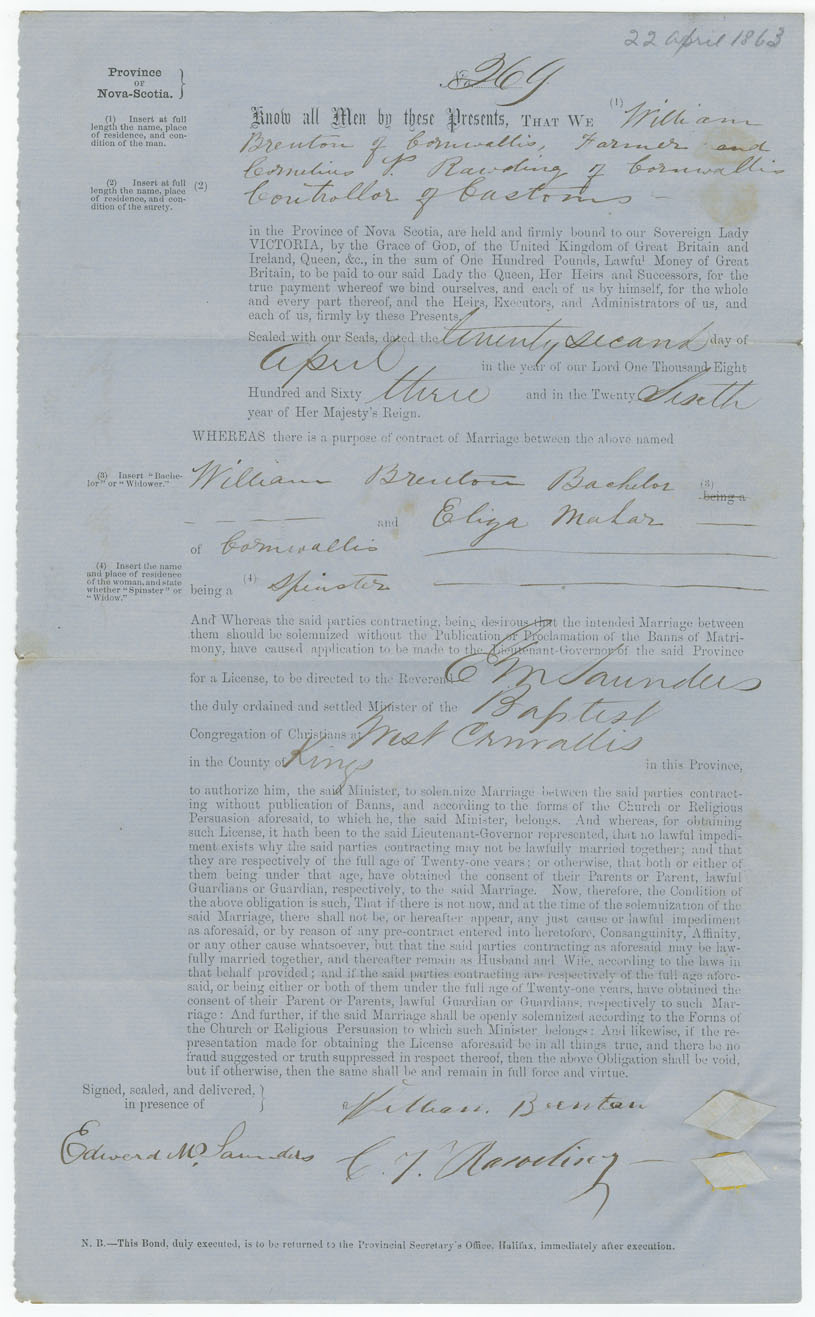 22 April 1863
Province
OF
Nova-Scotia.
No 269
(1) Insert at full
length the name, place
of residence, and con-
dition of the man.
Know all Men by these Presents, THAT WE (1) William
Brenton of Cornwallis, Farmer and
Cornelius T. Rawding of Cornwallis
(2) Insert at full
length the name, place
of residence, and con-
dition of the surety.
(2) Controllor of Customs —
in the Province of Nova Scotia, are held and firmly bound to our Sovereign Lady
VICTORIA, by the Grace of GOD, of the United Kingdom of Great Britain and
Ireland, Queen, &c., in the sum of One Hundred Pounds, Lawful Money of Great
Britain, to be paid to our said Lady the Queen, Her Heirs and Successors, for the
true payment whereof we bind ourselves, and each of us by himself, for the whole
and every part thereof, and the Heirs, Executors, and Administrators of us, and
each of us, firmly by these Presents.
Sealed with our Seals, dated the twenty second day of
April in the year of our Lord One Thousand Eight
Hundred and Sixty three and in the Twenty Sixth
year of Her Majesty's Reign.
WHEREAS there is a purpose of contract of Marriage between the above named
(3) Insert "Bache-
lor" or "Widower."
William Brenton Bachelor (3) being a
— — and Eliza Mahar —
of Cornwallis —
(4) Insert the name
and place of residence
of the woman, and state
whether "Spinster" or
"Widow."
being a (4) Spinster —
And Whereas the said parties contracting, being desirous that the intended Marriage between
them should be solemnized without the Publication or Proclamation of the Banns of Matri-
mony, have caused application to be made to the Lieutenant-Governor of the said Province
for a License, to be directed to the Reverend E M Saunders
the duly ordained and settled Minister of the Baptist
Congregation of Christians at West Cornwallis
in the County of Kings in this Province,
to authorize him, the said Minister, to solemnize Marriage between the said parties contract-
ing without publication of Banns, and according to the forms of the Church or Religious
Persuasion aforesaid, to which he, the said Minister, belongs. And whereas, for obtaining
such License, it hath been to the said Lieutenant-Governor represented, that no lawful impedi-
ment exists why the said parties contracting may not be lawfully married together; and that
they are respectively of the full age of Twenty-one years; or otherwise, that both or either of
them being under that age, have obtained the consent of their Parents or Parent, lawful
Guardians or Guardian, respectively, to the said Marriage. Now, therefore, the Condition of
the above obligation is such, That if there is not now, and at the time of the solemnization of the
said Marriage, there shall not be, or hereafter appear, any just cause or lawful impediment
as aforesaid, or by reason of any pre-contract entered into heretofore, Consanguinity, Affinity,
or any other cause whatsoever, but that the said parties contracting as aforesaid may be law-
fully married together, and thereafter remain as Husband and Wife, according to the laws in
that behalf provided; and if the said parties contracting are respectively of the full age afore-
said, or being either or both of them under the full age of Twenty-one years, have obtained the
consent of their Parent or Parents, lawful Guardian or Guardians, respectively to such Mar-
riage: And further, if the said Marriage shall be openly solemnized according to the Forms of
the Church or Religious Persuasion to which such Minister belongs: And likewise, if the re-
presentation made for obtaining the License aforesaid be in all things true, and there be no
fraud suggested or truth suppressed in respect thereof, then the above Obligation shall be void,
but if otherwise, then the same shall be and remain in full force and virtue.
Signed, sealed, and delivered,
in presence of
William. Brentan
Edward M. Saunders
C. T. Rawding —
N. B.—This Bond, duly executed, is to be returned to the Provincial Secretary's Office, Halifax, immediately after execution.